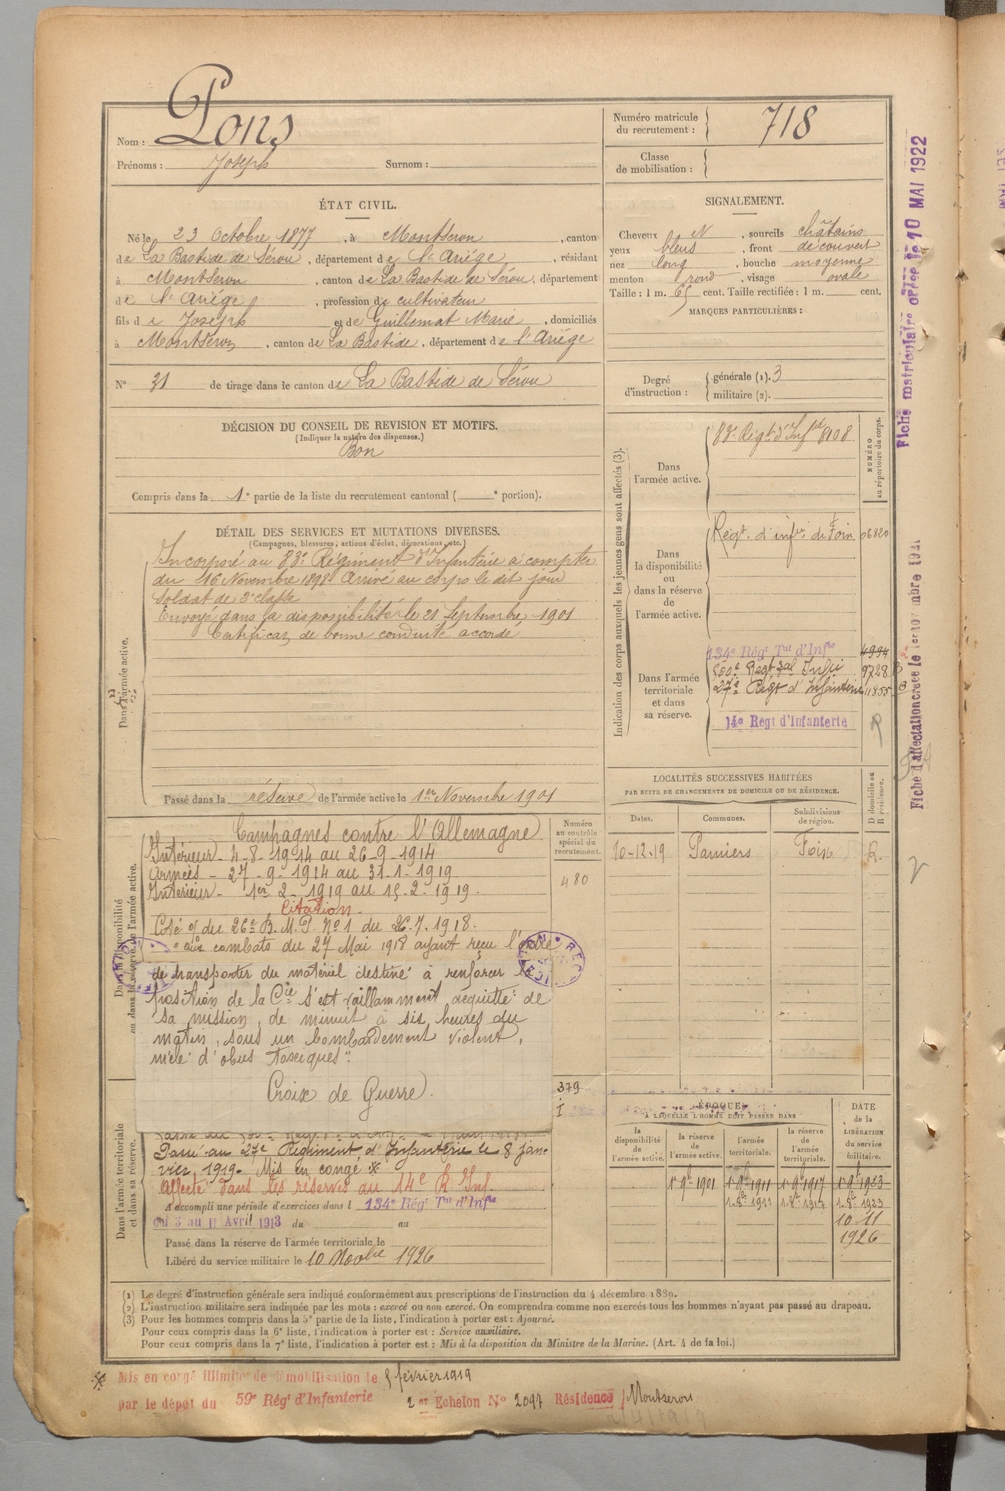 Nom : Pons
Prénoms : Joseph Surnom :
Numéro matricule du recrutement : 718
Classe de mobilisation :
ÉTAT CIVIL.
Né le 23 Octobre 1877, à Montseron, canton
de La Bastide de Sérou, département de l'Ariège, résidant
à Montseron, canton de La Bastide de Sérou, département
de l'Ariège, profession de cultivateur
fils de Joseph et de Guillemat Marie, domiciliés
à Montseron, canton de La Bastide, département de l'Ariège
N° 31 de tirage dans le canton de La Bastide de Sérou
SIGNALEMENT.
Cheveux N, sourcils châtains
yeux bleus, front découvert
nez long, bouche moyenne
menton rond, visage ovale
Taille : 1 m. 65 cent. Taille rectifiée : 1 m. cent.
MARQUES PARTICULIÈRES :
Degré d'instruction : générale (1). 3
militaire (2).
DÉCISION DU CONSEIL DE REVISION ET MOTIFS.
(Indiquer la nature des dispenses.)
Bon
Compris dans la 1e partie de la liste du recrutement cantonal ( e portion).
DÉTAIL DES SERVICES ET MUTATIONS DIVERSES.
(Campagnes, blessures, actions d'éclat, décorations, etc.)
Dans l'armée active.
Incorporé au 83e Régiment d'Infanterie à compter
du 16 Novembre 1898 Arrivé au corps le dit jour
Soldat de 2e classe
Envoyé dans la disponibilité le 21 Septembre 1901
Certificat de bonne conduite accordé
Passé dans la réserve de l'armée active le 1er Novembre 1901
Indication des corps auxquels les jeunes gens sont affectés (3).
NUMÉRO au répertoire du corps.
Dans l'armée active.
83e Régt d'Infie 8108
Dans la disponibilité ou dans la réserve de l'armée active.
Régt. d'infie de Foix 06820
Dans l'armée territoriale et dans sa réserve.
134e Régt Tal d'Infie 4994
500e Régt tal Infie 9728
27e Régt d'Infanterie 11855
14e Regt d'Infanterie
LOCALITÉS SUCCESSIVES HABITÉES
PAR SUITE DE CHANGEMENTS DE DOMICILE OU DE RÉSIDENCE.
D domicile ou R résidence.
Dates. Communes. Subdivisions de région.
10-12-19 Pamiers Foix R.
Dans la disponibilité ou dans la réserve de l'armée active.
Numéro au contrôle spécial du recrutement.
480
Campagnes contre l'Allemagne
Intérieur - 4-8-1914 au 26-9-1914
Armées - 27-9-1914 au 31-1-1919
Intérieur - 1er 2-1919 au 15-2-1919.
Citation
Cité du 26e B.M.P. N° 1 du 26.7.1918.
"aux combats du 27 Mai 1918 ayant reçu l'ordre
de transporter du matériel destiné à renforcer la
position de la Cie s'est vaillamment acquitté de
sa mission, de minuit à six heures du
matin, sous un bombardement violent,
mêlé d'obus toxiques".
Croix de Guerre.
379
Dans l'armée territoriale et dans sa réserve.
Passé au 27e Régiment d'Infanterie le 8 jan-
vier 1919. Mis en congé *
Affecté dans les réserves au 14e R Inf.
A accompli une période d'exercices dans l 134e Régt Tal d'Infie
du 3 au 11 Avril 1913 du au
Passé dans la réserve de l'armée territoriale le
Libéré du service militaire le 10 Novbre 1926
ÉPOQUE
À LAQUELLE L'HOMME DOIT PASSER DANS
DATE de la LIBÉRATION du service militaire.
la disponibilité de l'armée active. la réserve de l'armée active. l'armée territoriale. la réserve de l'armée territoriale.
1er 9bre 1901 1er 9bre 1911 1er 9bre 1917 1er 9bre 1923
10-11
1926
(1) Le degré d'instruction générale sera indiqué conformément aux prescriptions de l'instruction du 4 décembre 1889.
(2) L'instruction militaire sera indiquée par les mots : exercé ou non exercé. On comprendra comme non exercés tous les hommes n'ayant pas passé au drapeau.
(3) Pour les hommes compris dans la 5e partie de la liste, l'indication à porter est : Ajourné.
Pour ceux compris dans la 6e liste, l'indication à porter est : Service auxiliaire.
Pour ceux compris dans la 7e liste, l'indication à porter est : Mis à la disposition du Ministre de la Marine. (Art. 4 de la loi.)
* Mis en congé illimité de démobilisation le 5 février 1919
par le dépôt du 59e Régt d'Infanterie 2e Echelon N° 2097 Résidence Montseron
Fiche matriculaire créée le 10 MAI 1922
Fiche d'affectation créée le 1er novembre 1921